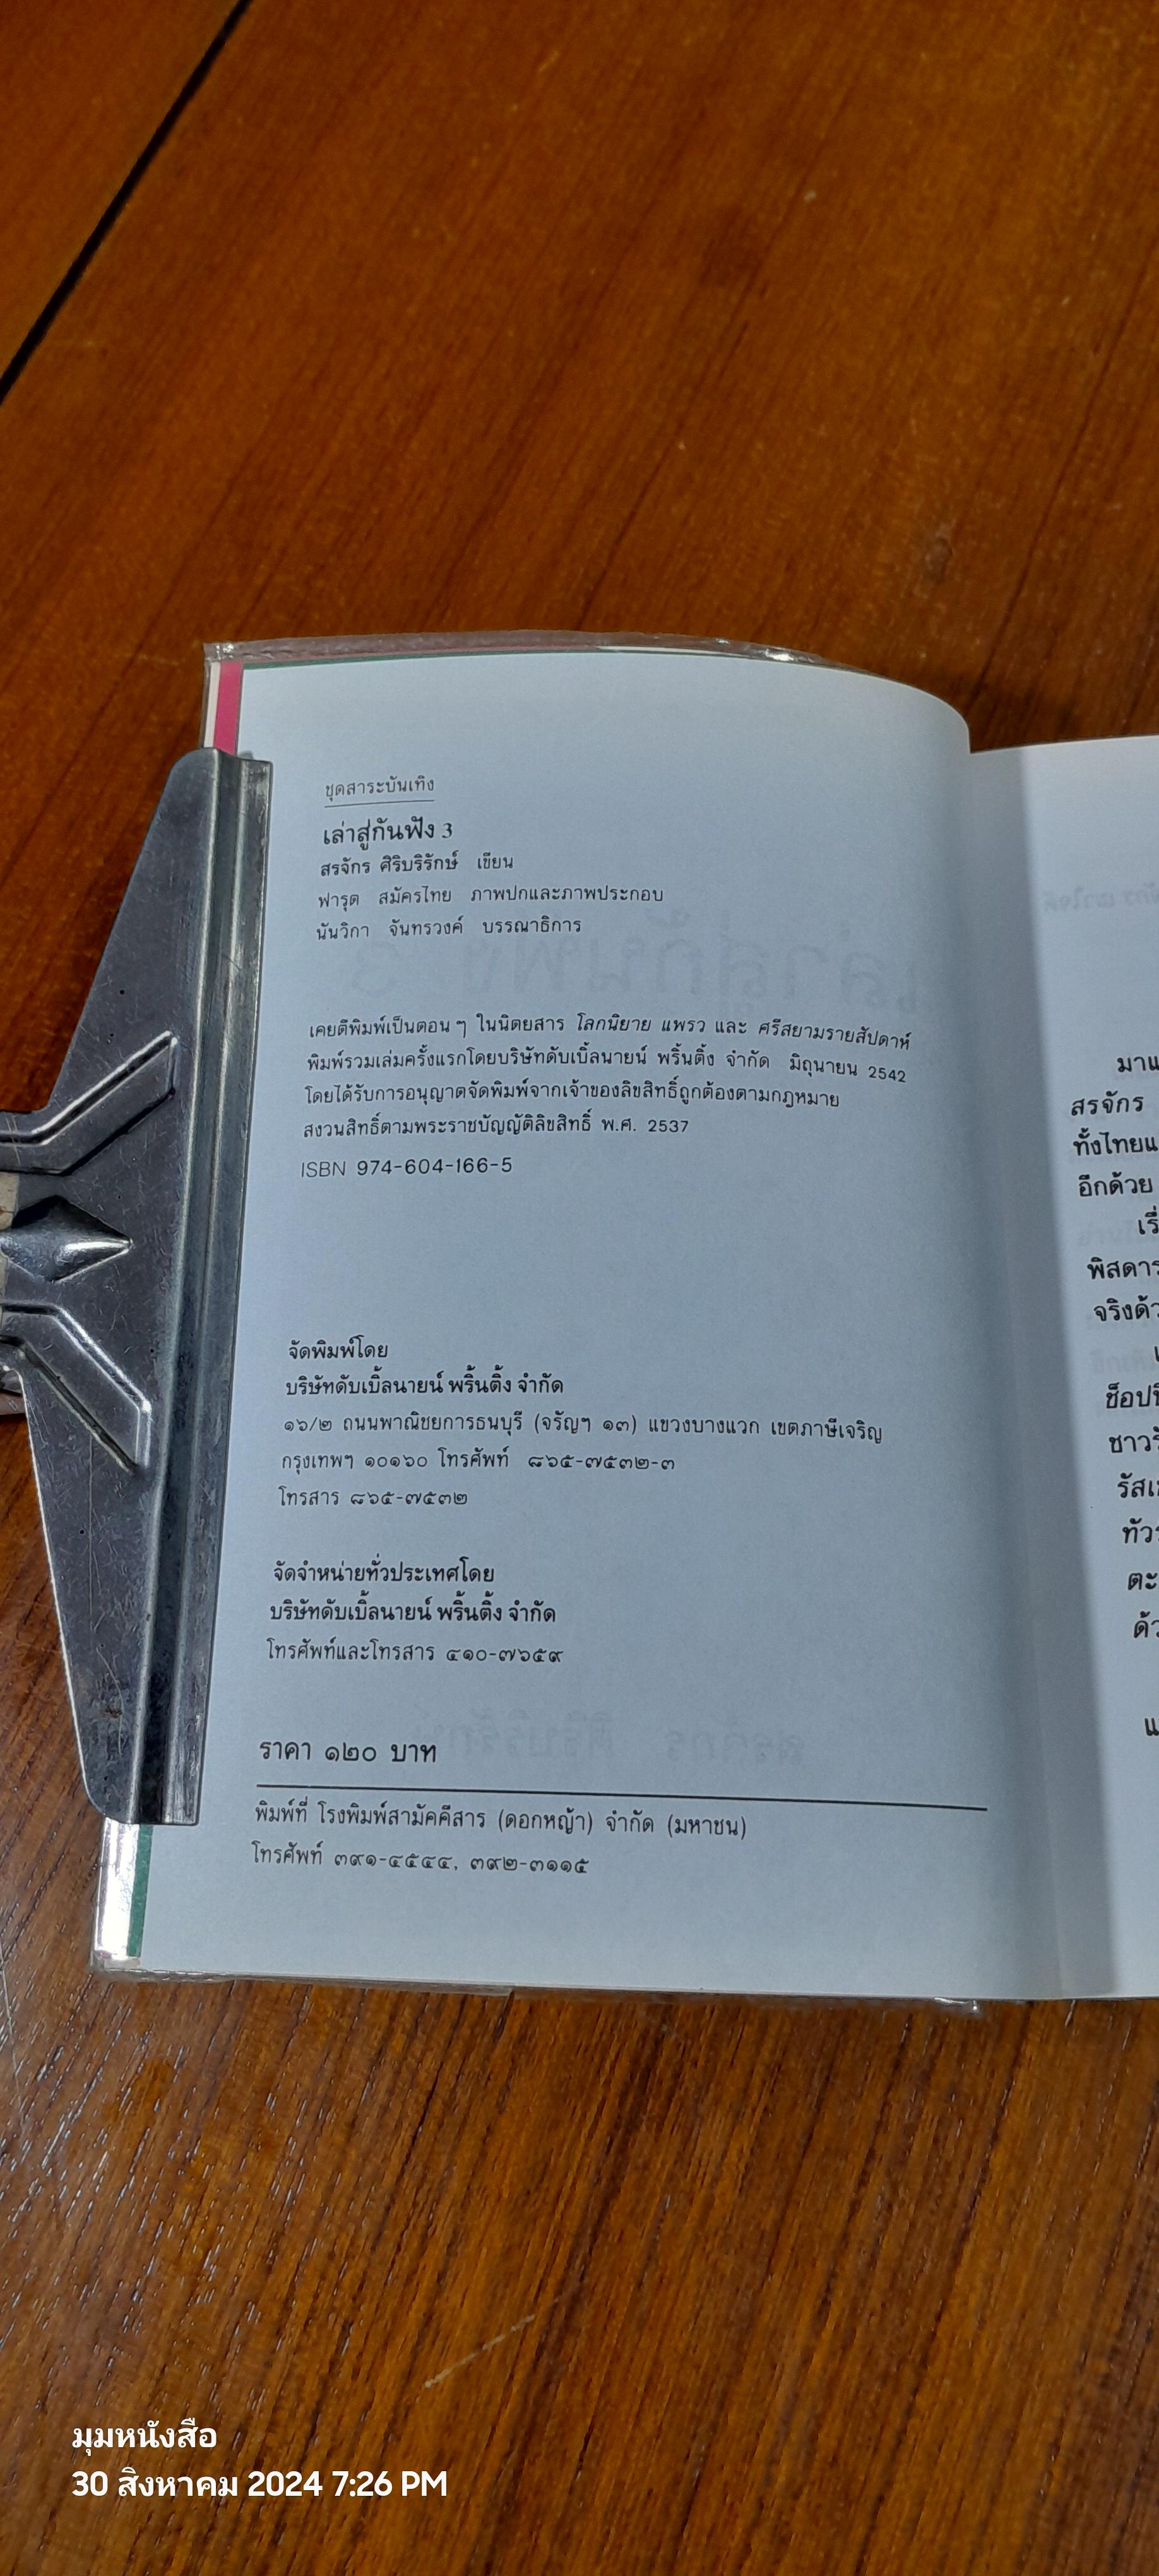 ชุดสาระบันเทิง
เล่าสู่กันฟัง 3
สรจักร ศิริบริรักษ์ เขียน
ฟารุต สมัครไทย ภาพปกและภาพประกอบ
นันวิกา จันทรวงค์ บรรณาธิการ
เคยตีพิมพ์เป็นตอนๆ ในนิตยสาร โลกนิยาย แพรว และ ศรีสยามรายสัปดาห์
พิมพ์รวมเล่มครั้งแรกโดยบริษัทดับเบิ้ลนายน์ พริ้นติ้ง จำกัด มิถุนายน 2542
โดยได้รับการอนุญาตจัดพิมพ์จากเจ้าของลิขสิทธิ์ถูกต้องตามกฎหมาย
สงวนสิทธิ์ตามพระราชบัญญัติลิขสิทธิ์ พ.ศ. 2537
ISBN 974-604-166-5
จัดพิมพ์โดย
บริษัทดับเบิ้ลนายน์ พริ้นติ้ง จำกัด
๑๖/๒ ถนนพาณิชยการธนบุรี (จรัญฯ ๑๓) แขวงบางแวก เขตภาษีเจริญ
กรุงเทพฯ ๑๐๑๖๐ โทรศัพท์ ๘๖๕-๗๕๓๒-๓
โทรสาร ๘๖๕-๗๕๓๒
จัดจำหน่ายทั่วประเทศโดย
บริษัทดับเบิ้ลนายน์ พริ้นติ้ง จำกัด
โทรศัพท์และโทรสาร ๔๑๐-๗๖๕๙
ราคา ๑๒๐ บาท
พิมพ์ที่ โรงพิมพ์สามัคคีสาร (ดอกหญ้า) จำกัด (มหาชน)
โทรศัพท์ ๓๙๑-๔๕๔๔, ๓๙๒-๓๑๑๕
สรจักร
ทั้งไทยแ
อีกด้วย
เรื่
พิสดาร
จริงด้ว
ช็อปปิ
ชาวรั
ทัวร
ตะ
ด้ว
แ
มุมหนังสือ
30 สิงหาคม 2024 7:26 PM